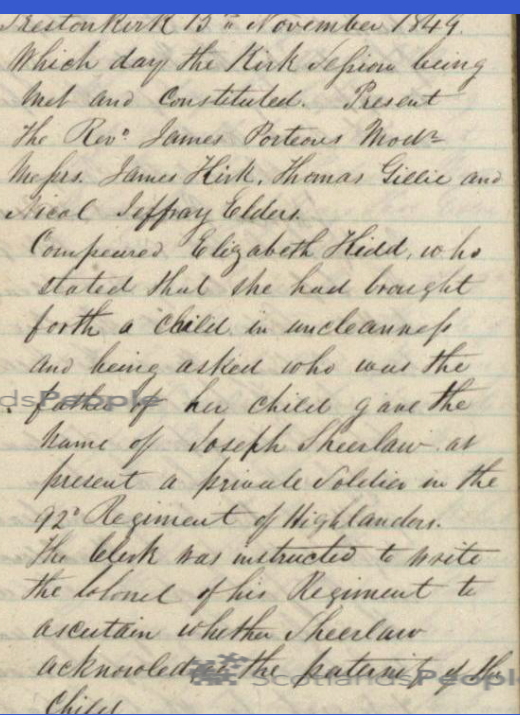 Prestonkirk 13th November 1849.
Which day the Kirk Session being
met and constituted. Present
The Revd. James Porteous Modr
Messrs. James Kirk, Thomas Gillie and
Nicol Jeffray Elders.
Compeared Elizabeth Kidd, who
stated that she had brought
forth a child in uncleanness
and being asked who was the
father of her child gave the
name of Joseph Sheerlaw at
present a private Soldier in the
92d Regiment of Highlanders.
The Clerk was instructed to write
the Colonel of his Regiment to
ascertain whether Sheerlaw
acknowledges the paternity of the
Child
dsPeople
ScotlandsPeopl